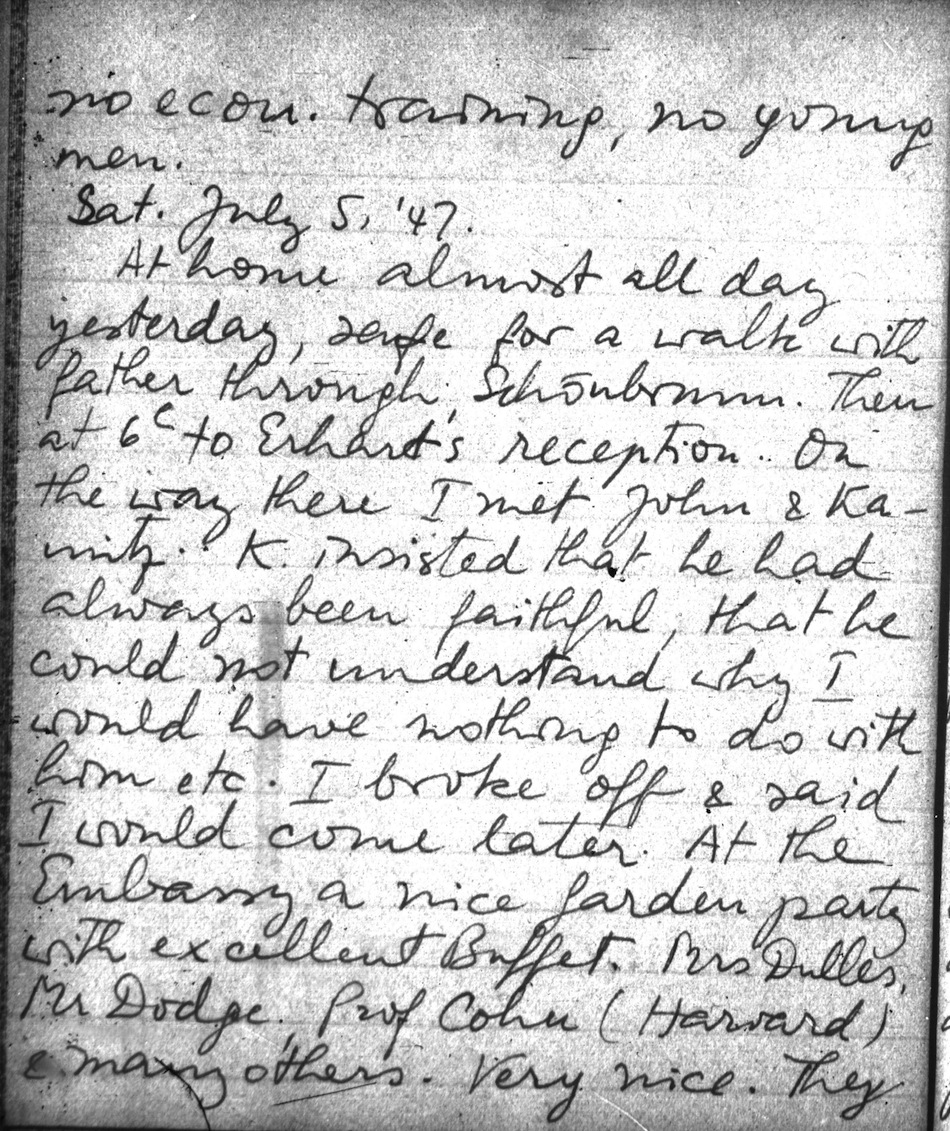 no econ. training, no young
men.
Sat. July 5, '47.
At home almost all day
yesterday, for a walk with
father through Schönbrunn. Then
at 6ᶜ to Erhardt's reception. On
the way there I met John & Kau-
nitz. K. insisted that he had
always been faithful, that he
could not understand why I
would have nothing to do with
him etc. I broke off & said
I would come later. At the
Embassy a nice garden party
with excellent Buffet. Mrs Dulles,
Mr Dodge, Prof Cohn (Harvard)
& many others. Very nice. They